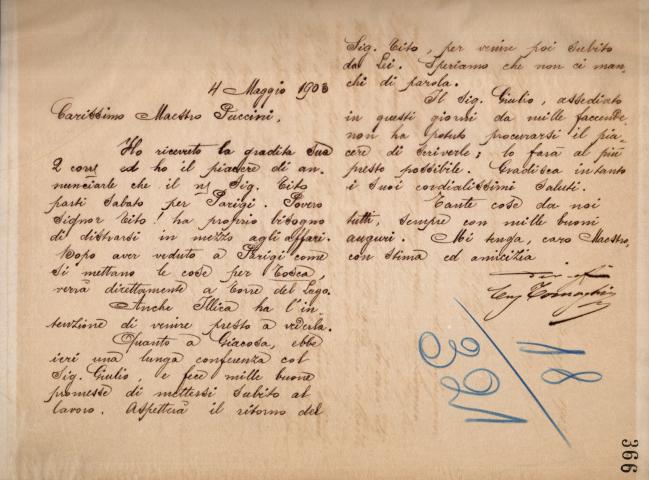 4 Maggio 1903
Carissimo Maestro Puccini,
Ho ricevuto la gradita Sua
2 corr. ed ho il piacere di an-
nunciarle che il ns/ Sig. Tito
partì Sabato per Parigi. Povero
Signor Tito! ha proprio bisogno
di distrarsi in mezzo agli affari.
Dopo aver veduto a Parigi come
si mettano le cose per Tosca,
verrà direttamente a Torre del Lago.
Anche Illica ha l'in-
tenzione di venire presto a vederla.
Quanto a Giacosa, ebbe
ieri una lunga conferenza col
Sig. Giulio e fece mille buone
promesse di mettersi subito al
lavoro. Aspetterà il ritorno del
Sig. Tito, per venire poi subito
da Lei. Speriamo che non ci man-
chi di parola.
Il Sig. Giulio, assediato
in questi giorni da mille faccende,
non ha potuto procurarsi il pia-
cere di scriverle; lo farà al più
presto possibile. Gradisca intanto
i Suoi cordialissimi saluti.
Tante cose da noi
tutti, sempre con mille buoni
auguri. Mi tenga, caro Maestro,
con stima ed amicizia
18
321
366